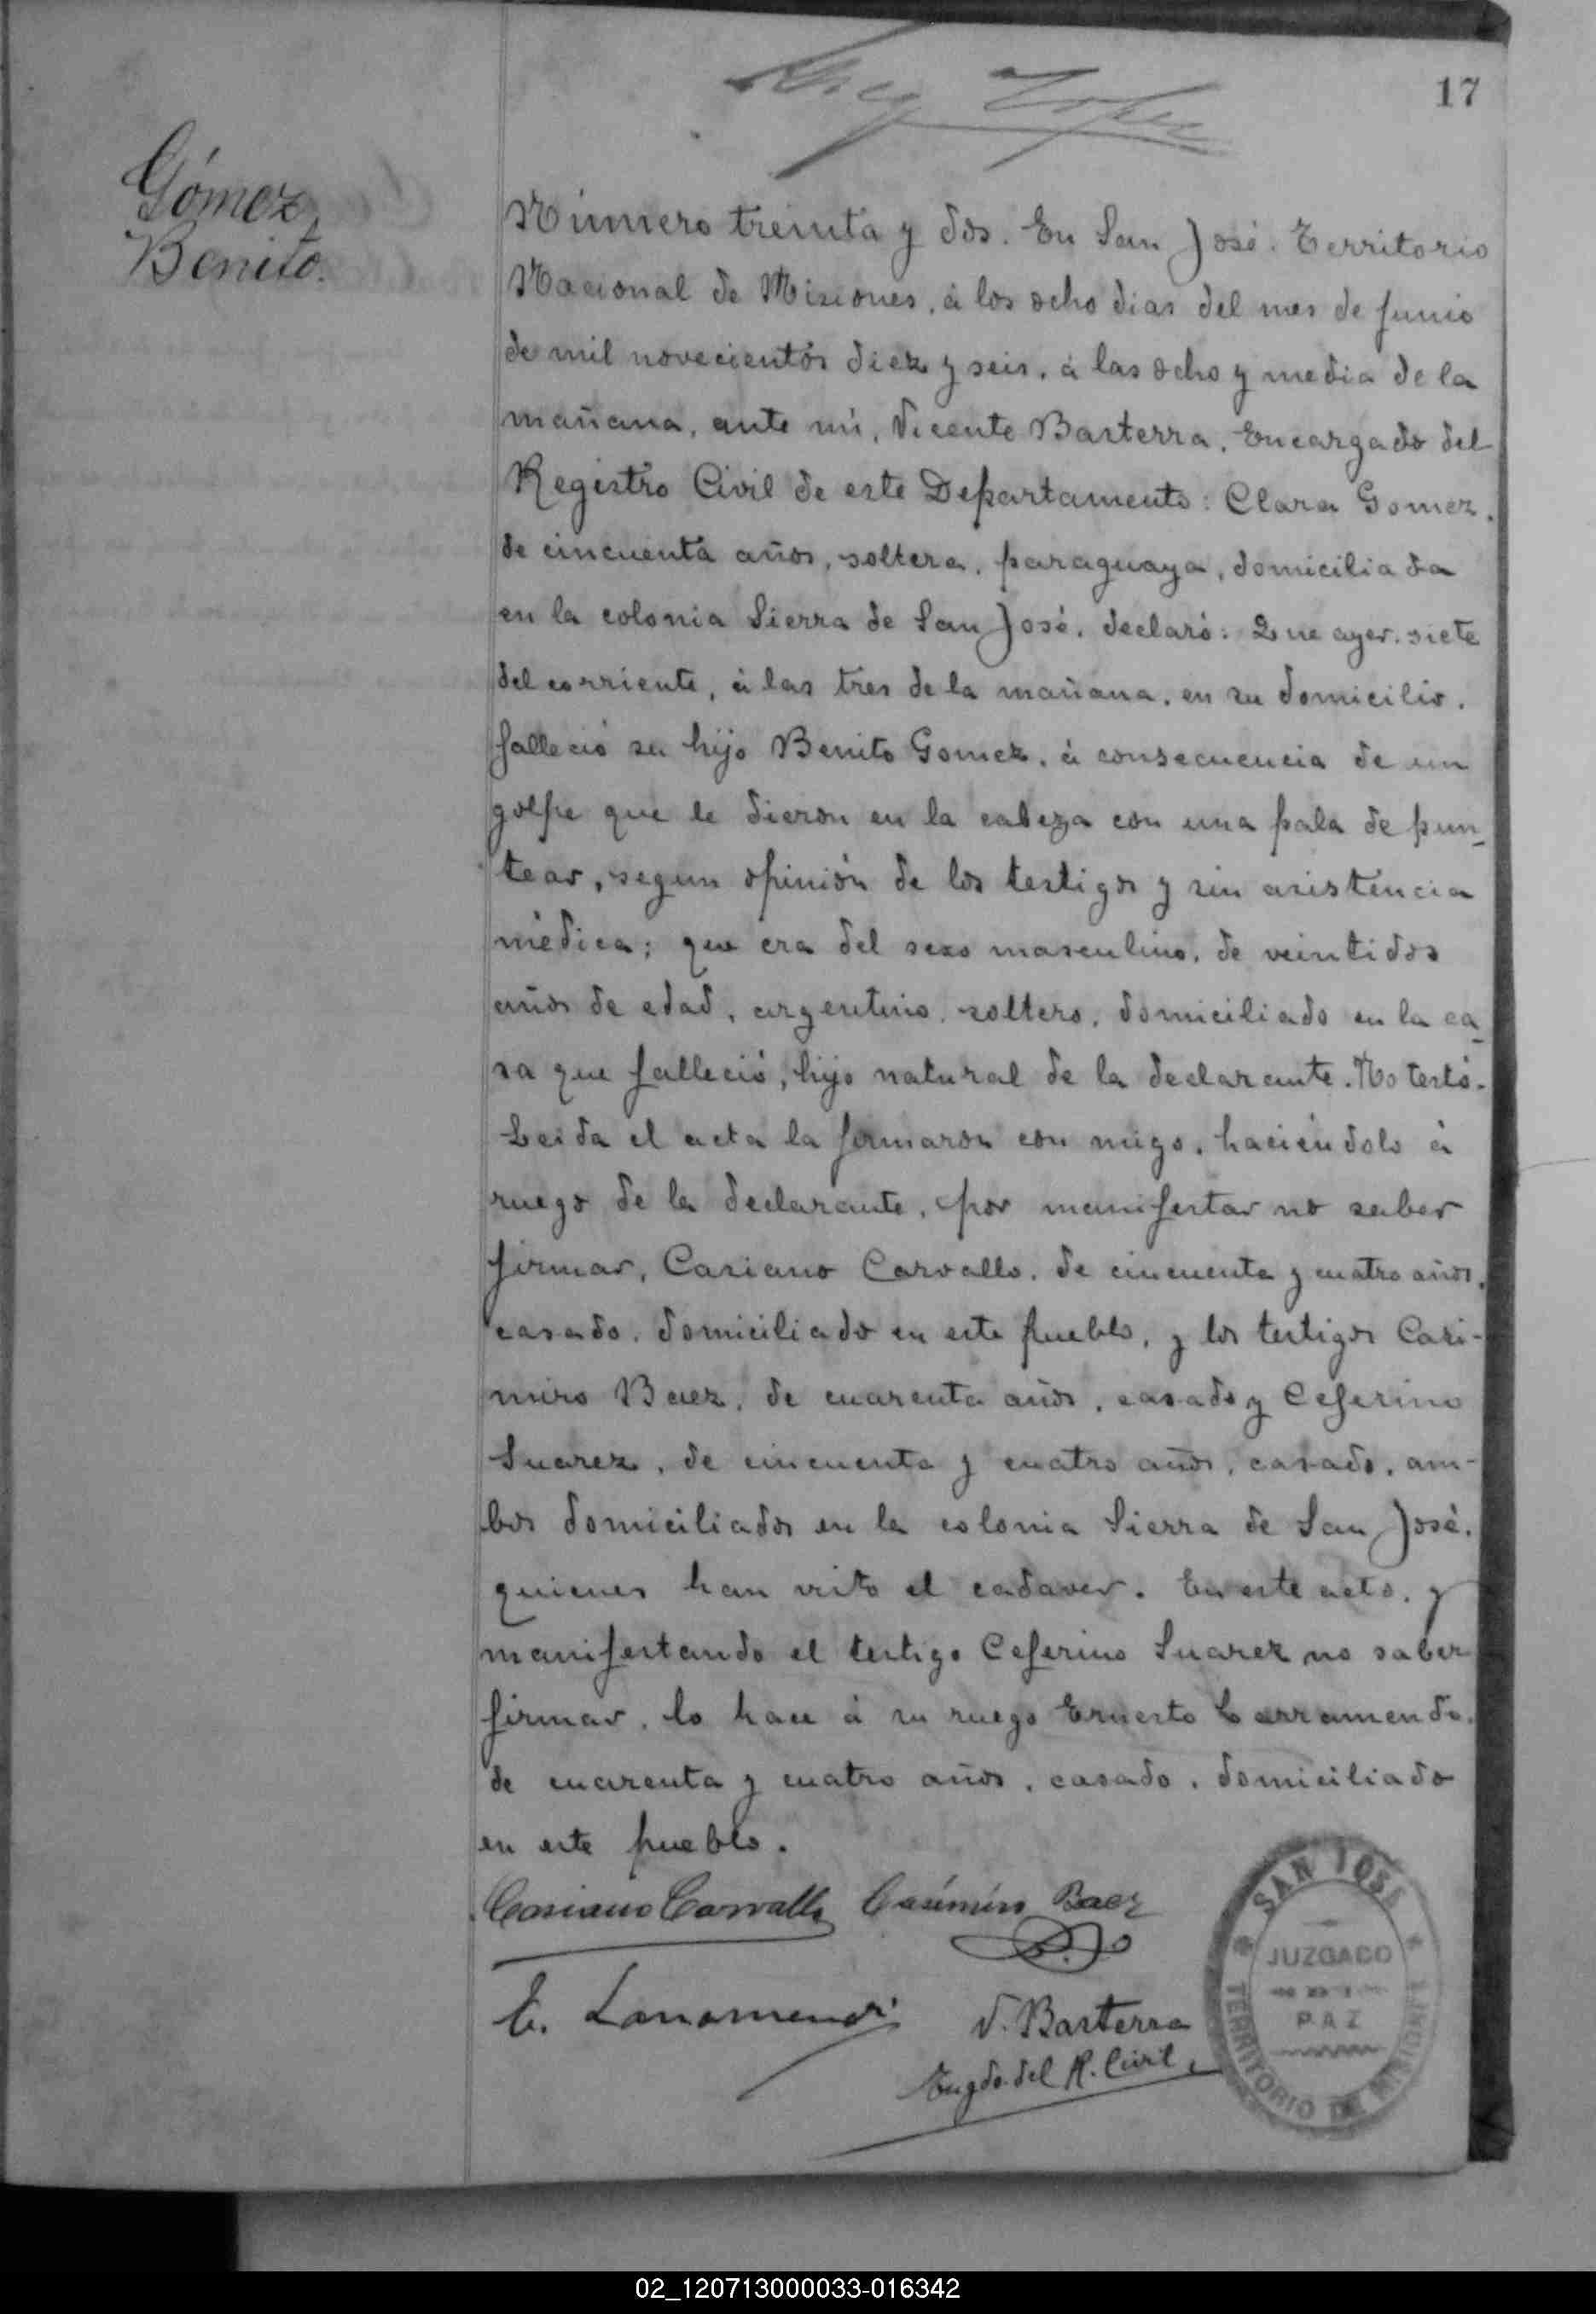 17
Gómez,
Benito.
Número treinta y dos. En San José. Territorio
Nacional de Misiones, á los ocho dias del mes de junio
de mil novecientos diez y seis, á las ocho y media de la
mañana, ante mi, Vicente Basterra, Encargado del
Registro Civil de este Departamento: Clara Gomez,
de cincuenta años, soltera, paraguaya, domiciliada
en la colonia Sierra de San José, declaró: Que ayer, siete
del corriente, á las tres de la mañana, en su domicilio,
falleció su hijo Benito Gomez, á consecuencia de un
golpe que le dieron en la cabeza con una pala de pun-
tear, segun opinión de los testigos y sin asistencia
médica; que era del sexo masculino, de veintidos
años de edad, argentino, soltero, domiciliado en la ca-
sa que falleció, hijo natural de la declarante. No testó.
Leida el acta la firmaron con migo, haciéndolo á
ruego de la declarante, por manifestar no saber
firmar, Casiano Carvallo, de cincuenta y cuatro años,
casado, domiciliado en este pueblo, y los testigos Casi-
miro Baez, de cuarenta años, casado y Ceferino
Suarez, de cincuenta y cuatro años, casado, am-
bos domiciliados en la colonia Sierra de San José,
quienes han visto el cadaver. En este acto, y
manifestando el testigo Ceferino Suarez no saber
firmar, lo hace á su ruego Ernesto Larramendi,
de cuarenta y cuatro años, casado, domiciliado
en este pueblo.
Casiano Carvallo Casimiro Baez
E. Larramendi V. Basterra
Engdo. del R. Civil
SAN JOSE
JUZGADO
DE
PAZ
TERRITORIO DE MISIONES
02_120713000033-016342